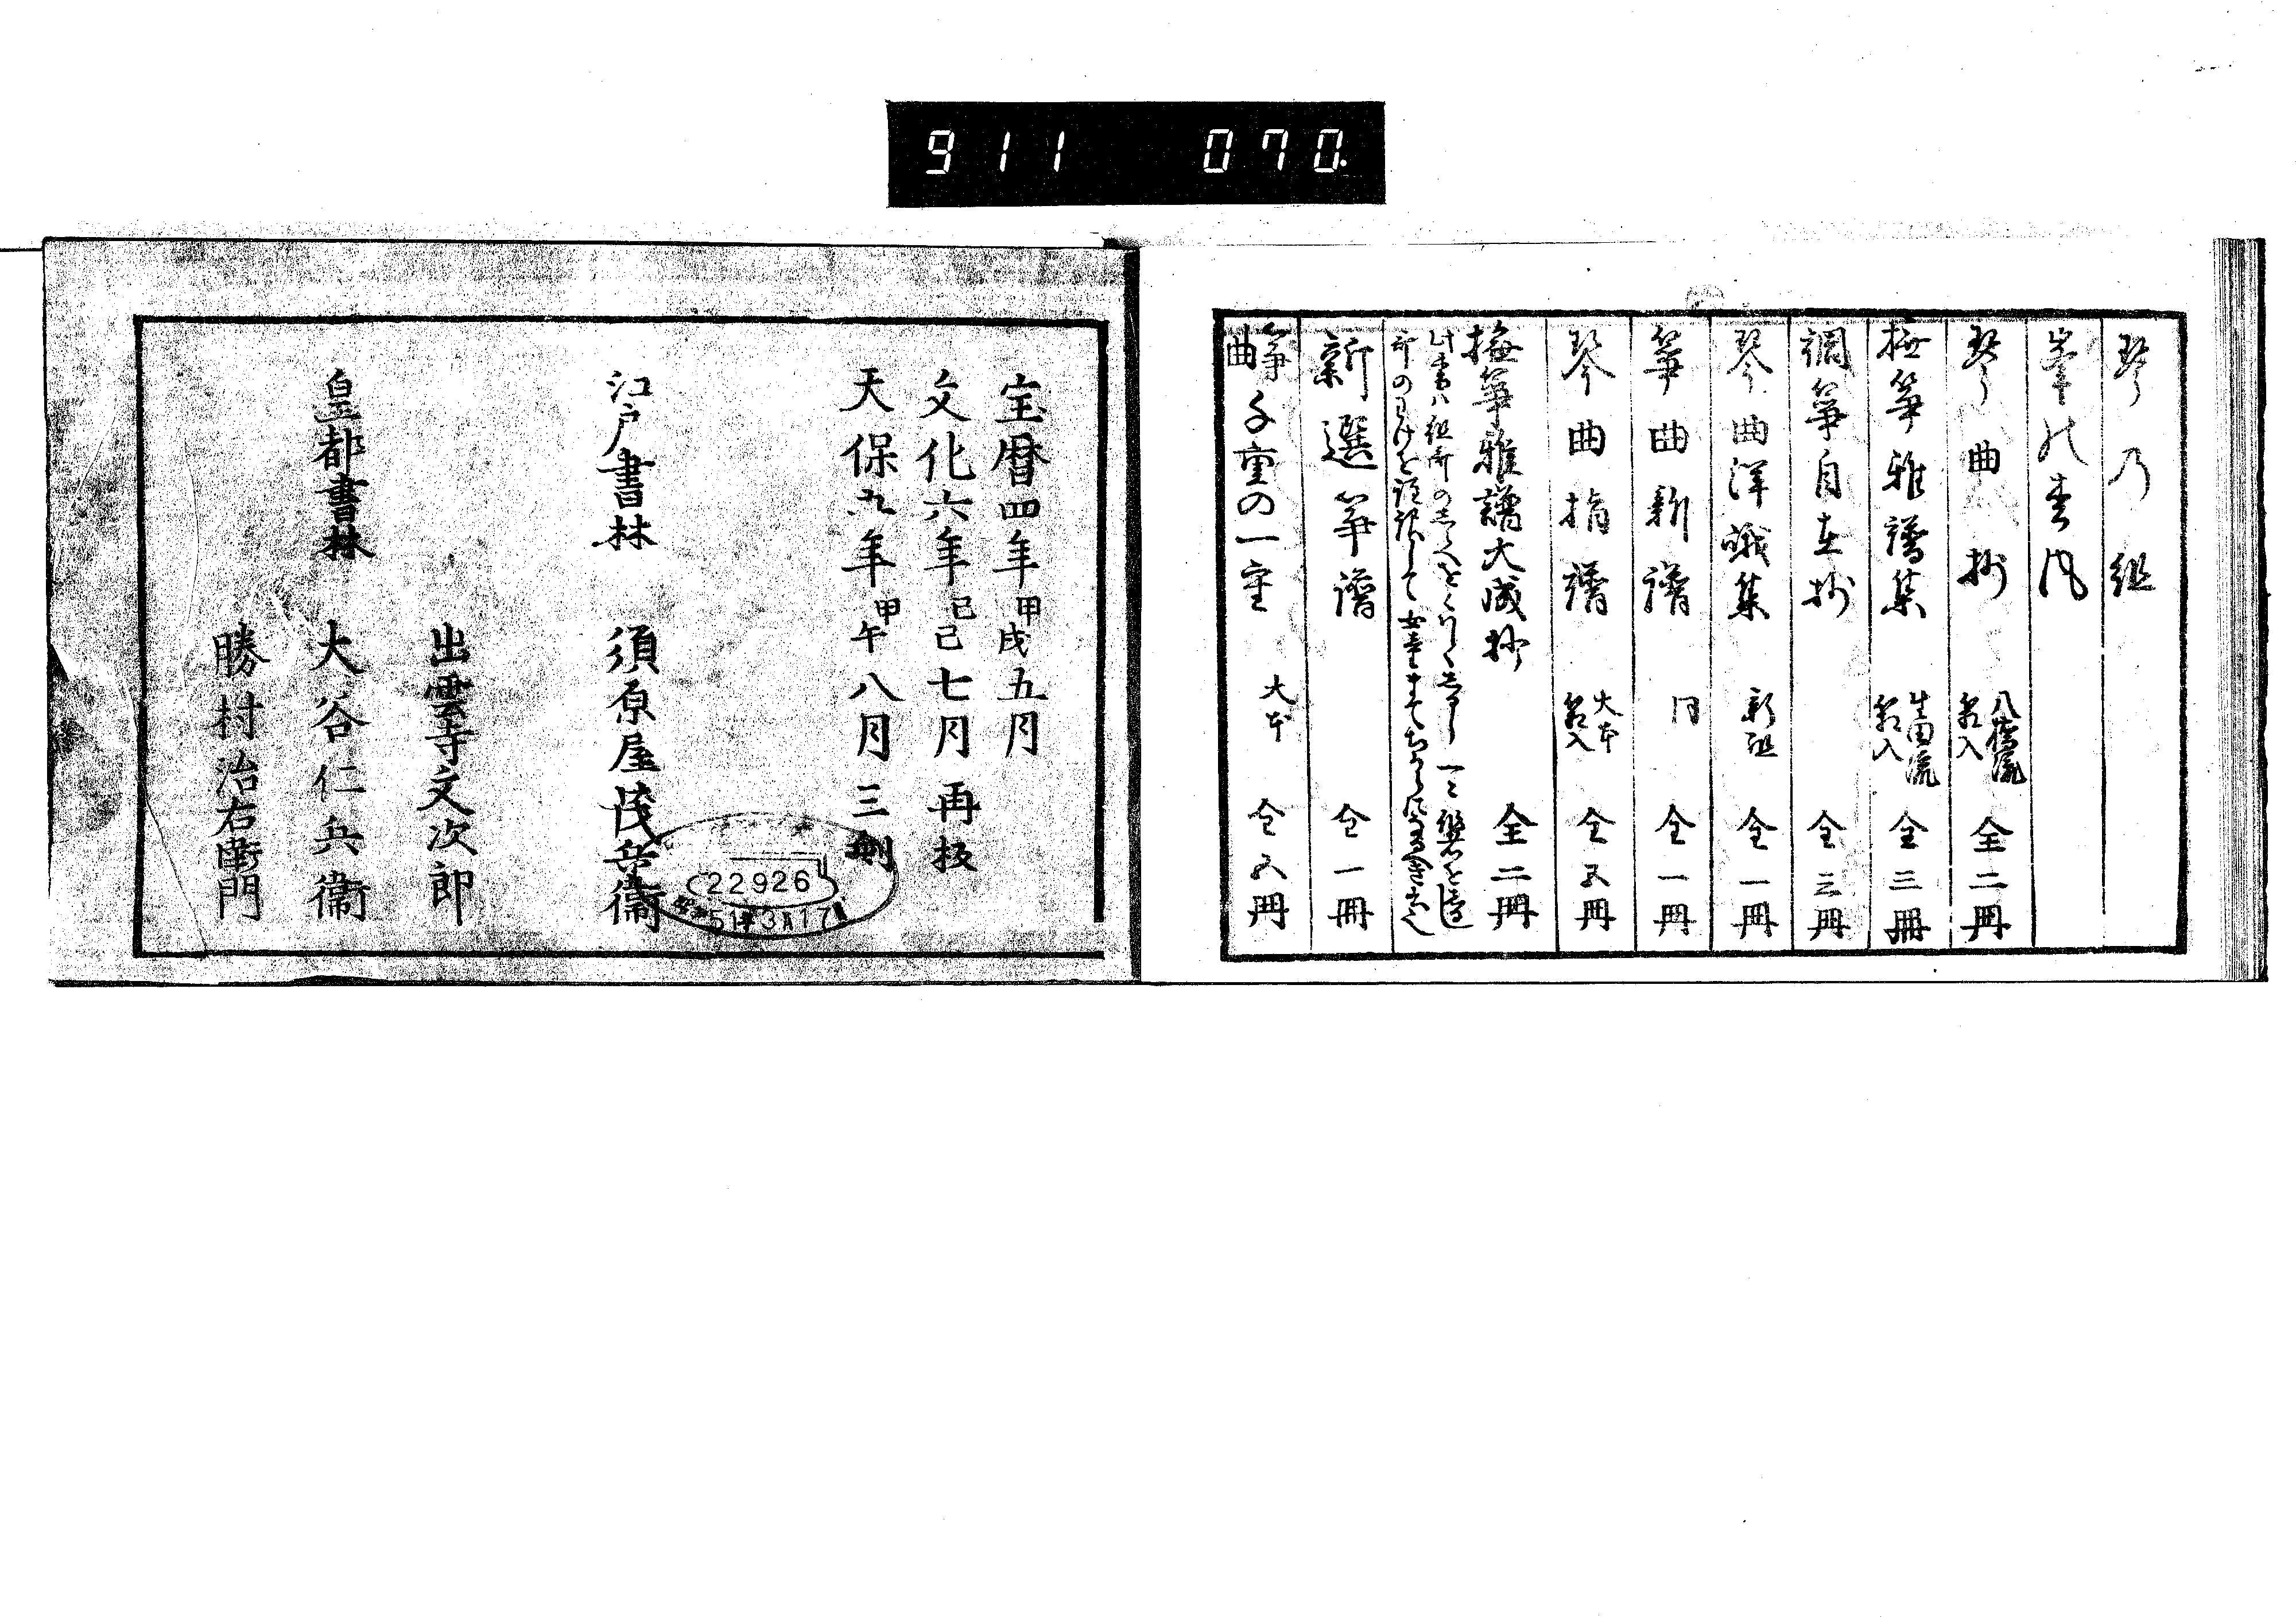 911 070
琴乃組
峯の春風
琴曲抄 八橋流 替名入 全二冊
撫箏雅譜集 生田流 替名入 全三冊
調箏自在抄 全三冊
琴曲洋峨集 新組 全一冊
箏曲新譜 同 全一冊
琴曲指譜 大本 全五冊
撫箏雅譜大成抄 全二冊
新選箏譜 全一冊
箏曲千重の一重 大本 全五冊
宝暦四年甲戌五月
文化六年己巳七月再板
天保九年甲午八月三刻
江戸書林 須原屋茂兵衞
出雲寺文次郎
皇都書林 大谷仁兵衞
勝村治右衛門
22926
昭和51年3月17日